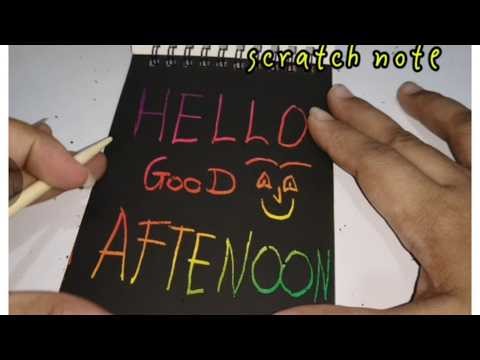 scratch note
HELLO
GOOD
AFTENOON